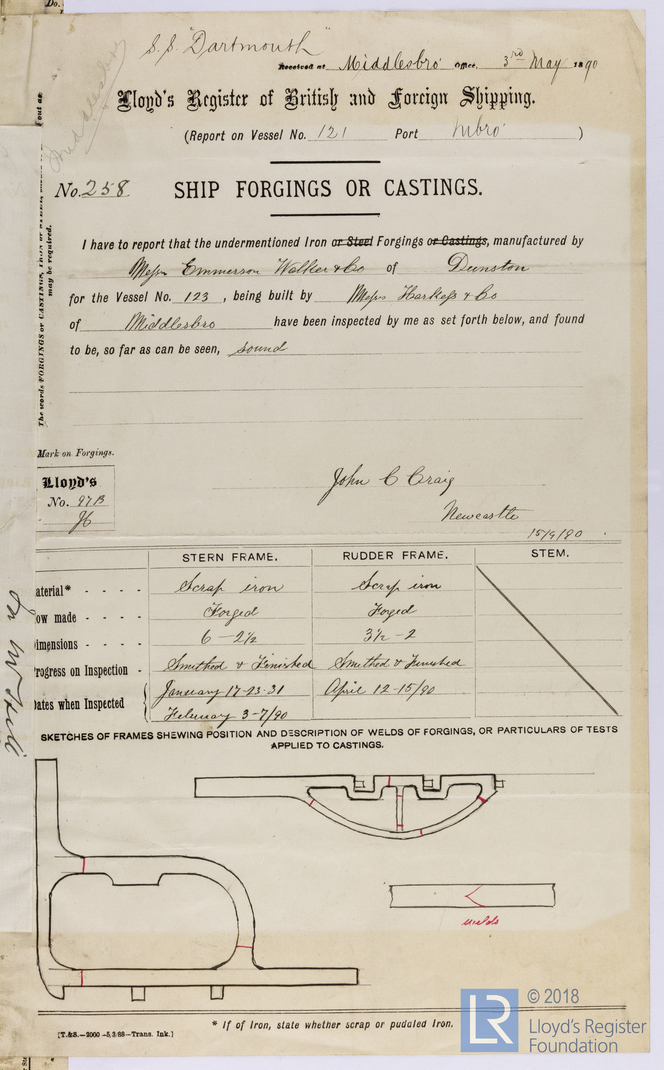 Do.
S.S. "Dartmouth"
Middlesbro
Received at Middlesbro' Office, 3rd May 1890
Lloyd's Register of British and Foreign Shipping.
(Report on Vessel No. 121 Port Mbro' )
No. 258 SHIP FORGINGS OR CASTINGS.
I have to report that the undermentioned Iron or Steel Forgings or Castings, manufactured by
Messrs Emmerson Walker & Co of Dunston
for the Vessel No. 123, being built by Messrs Harkess & Co
of Middlesbro have been inspected by me as set forth below, and found
to be, so far as can be seen, sound
The words FORGINGS or CASTINGS,
may be required.
Mark on Forgings.
Lloyd's
No. 97B
John C Craig
Newcastle
STERN FRAME. RUDDER FRAME. STEM.
aterial* - - - - Scrap iron Scrap iron
ow made - - - - Forged Forged
imensions - - - - 6 - 2½ 3½ - 2
rogress on Inspection - Smithed & Finished Smithed & Finished
Dates when Inspected { January 17-23-31 April 12-15/90
February 3-7/90
SKETCHES OF FRAMES SHEWING POSITION AND DESCRIPTION OF WELDS OF FORGINGS, OR PARTICULARS OF TESTS
APPLIED TO CASTINGS.
welds
* If of Iron, state whether scrap or puddled Iron.
[T.&S.—2000—5,3/88—Trans. Ink.]
LR © 2018
Lloyd's Register
Foundation